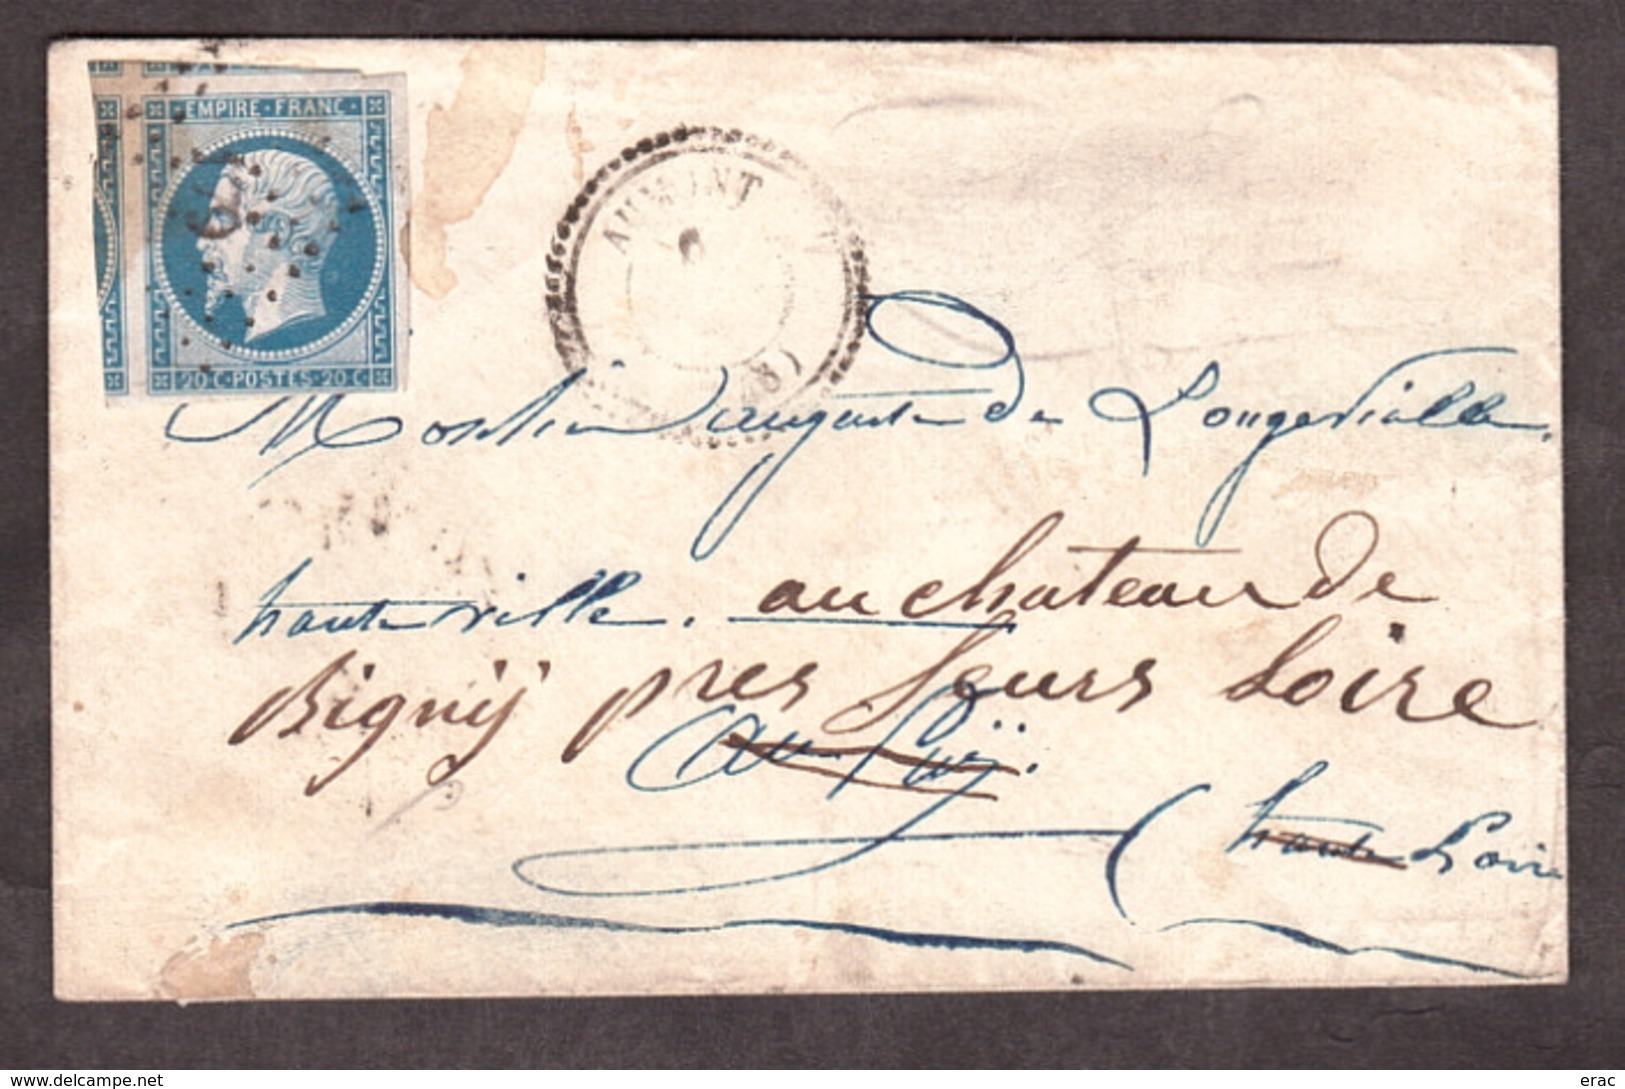 EMPIRE · FRANC ·
20 C · POSTES · 20 C
AUMONT
6
(48)
Monsieur auguste de Longevialle.
hauteville. au chateau de
Bigny pres feurs Loire
au Puÿ.
(haute Loire
© delcampe.net
erac